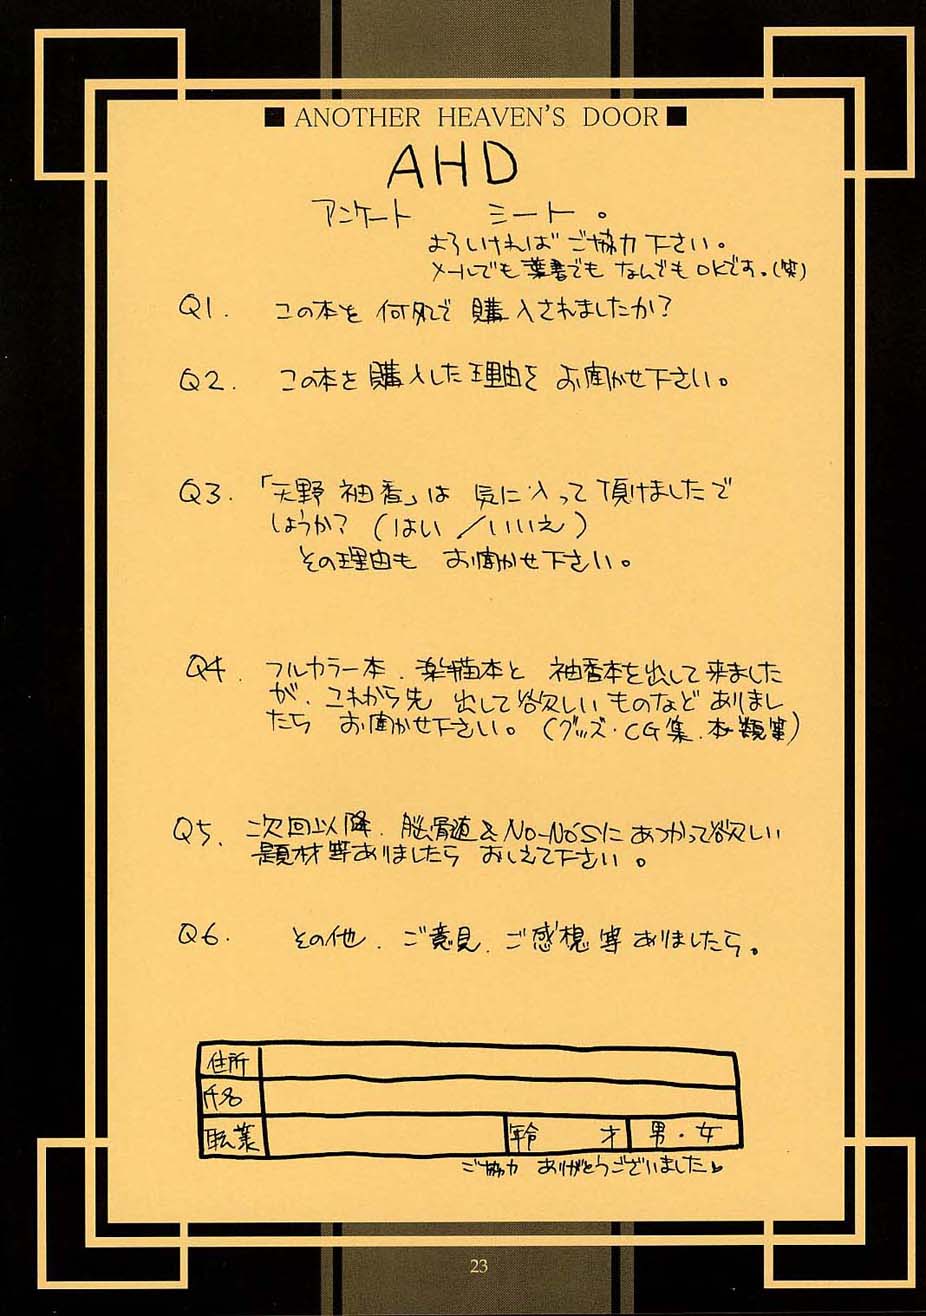 ■ ANOTHER HEAVEN'S DOOR ■
AHD
アンケート シート。
よろしければ ご協力 下さい。
メールでも 葉書でも なんでも OKです。(笑)
Q1. この本を 何処で 購入されましたか?
Q2. この本を 購入した理由を お聞かせ下さい。
Q3. 「天野 袖香」は 気に入って 頂けましたで
しょうか? (はい /いいえ)
その理由も お聞かせ下さい。
Q4. フルカラー本、楽描本と 袖香本を出して来ました
が、これから先 出して欲しい ものなど ありまし
たら お聞かせ下さい。 (グッズ・CG集、本類等)
Q5. 次回以降、脳骨髄&NO-NO'Sに あつかって欲しい
題材等ありましたら おしえて下さい。
Q6. その他、ご意見、ご感想等 ありましたら。
住所
氏名
職業 年令 才 男・女
ご協力 ありがとうございました
23